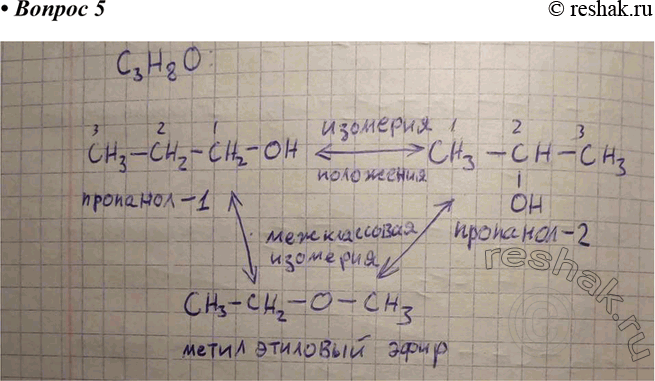 • Вопрос 5
© reshak.ru
C₃H₈O:
3 2 1
CH₃-CH₂-CH₂-OH
пропанол-1
изомерия
положения
1 2 3
CH₃-CH-CH₃
OH
пропанол-2
межклассовая
изомерия
CH₃-CH₂-O-CH₃
метил этиловый эфир
reshak.ru